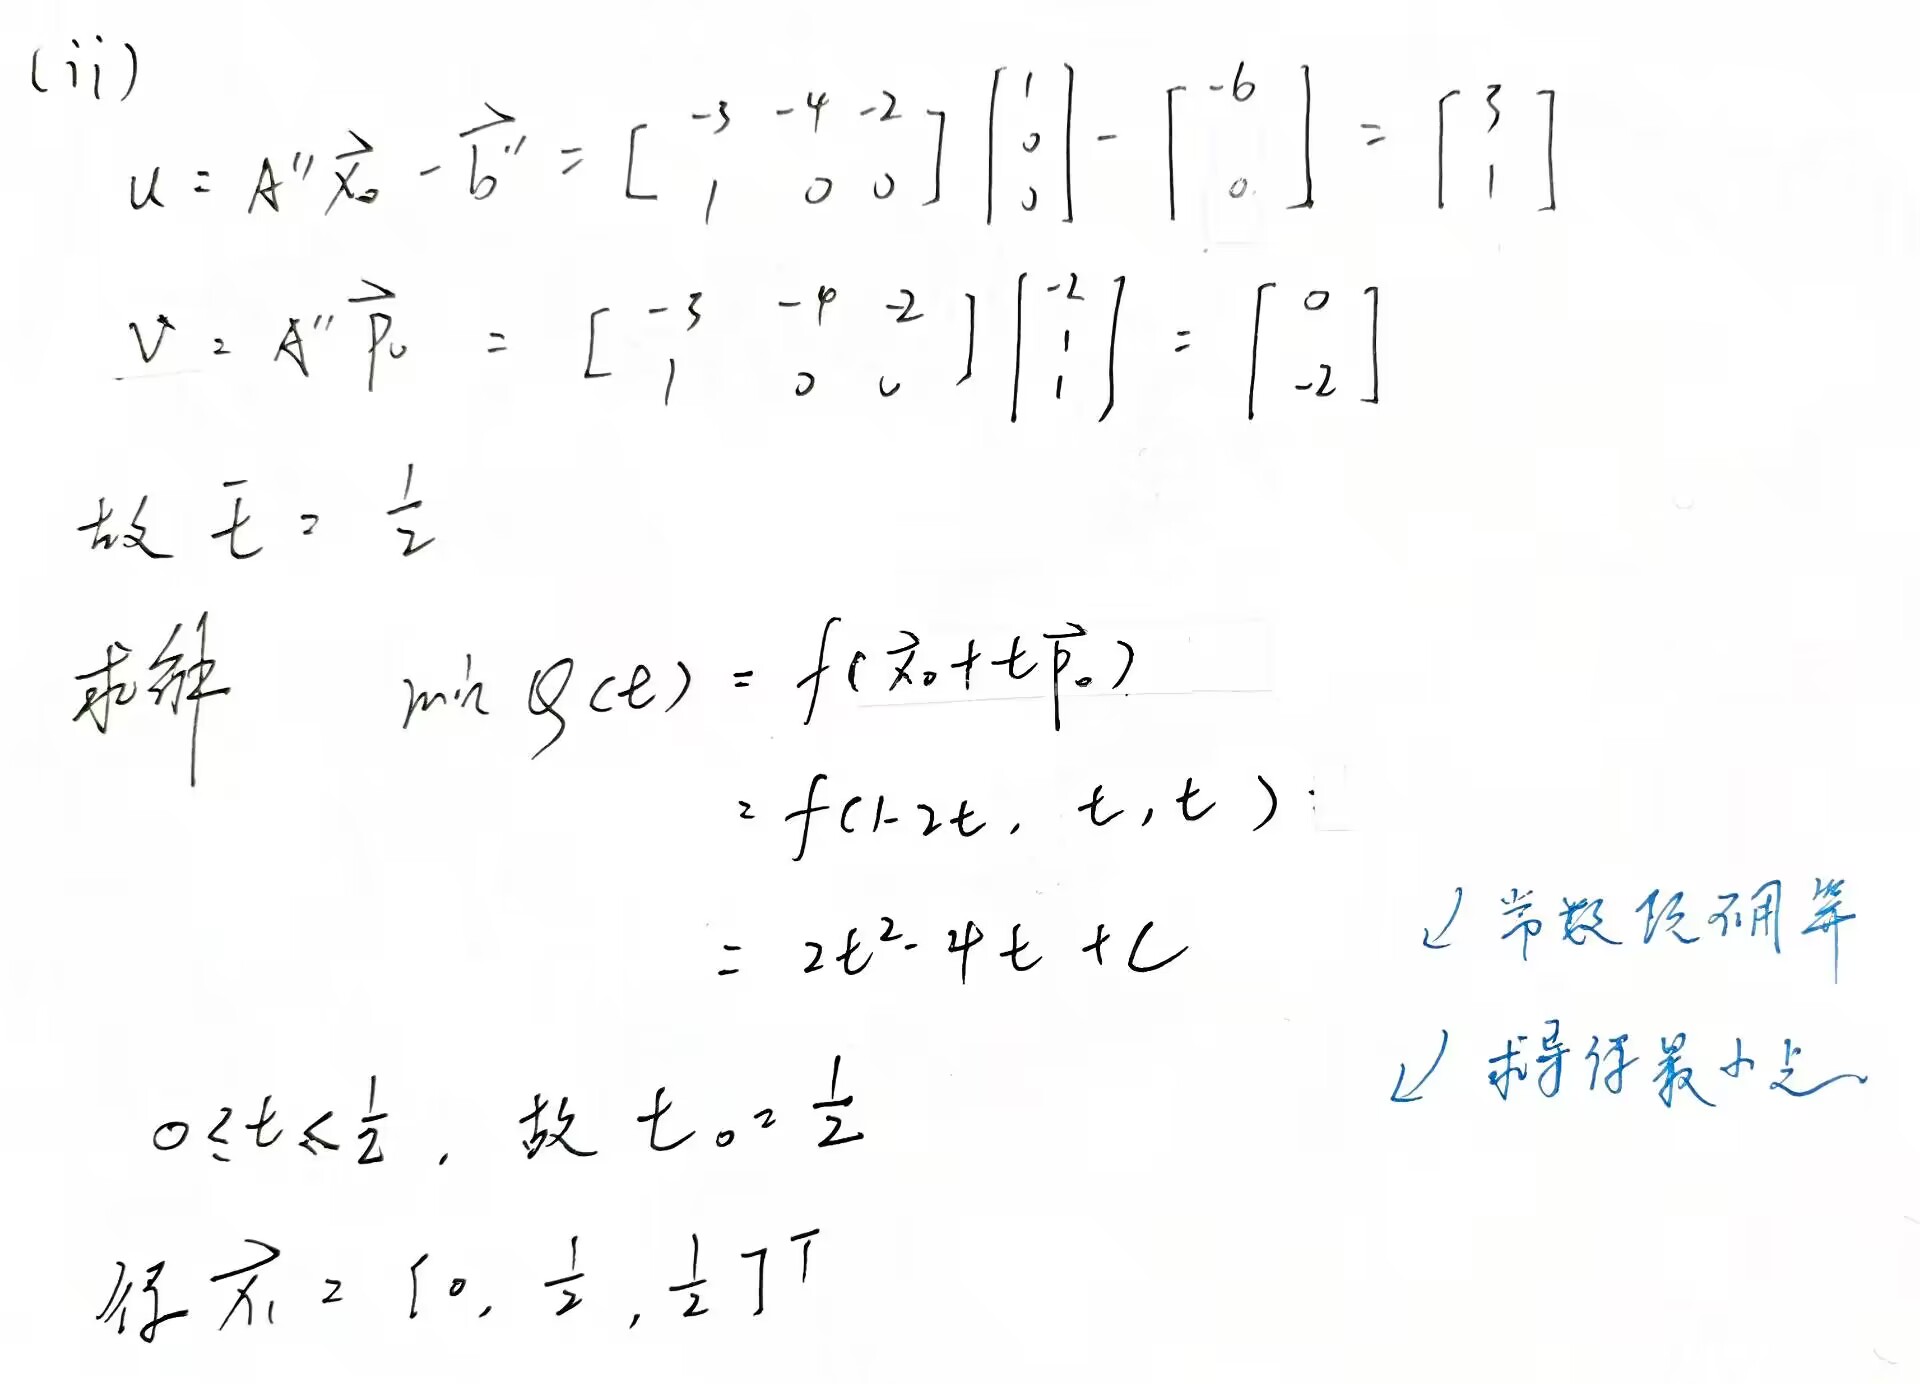 (ii)
u = A'' \vec{x}_0 - \vec{b}'' = \begin{bmatrix} -3 & -4 & -2 \\ 1 & 0 & 0 \end{bmatrix} \begin{bmatrix} 1 \\ 0 \\ 0 \end{bmatrix} - \begin{bmatrix} -6 \\ 0 \end{bmatrix} = \begin{bmatrix} 3 \\ 1 \end{bmatrix}
v = A'' \vec{p}_0 = \begin{bmatrix} -3 & -4 & -2 \\ 1 & 0 & 0 \end{bmatrix} \begin{bmatrix} -2 \\ 1 \\ 1 \end{bmatrix} = \begin{bmatrix} 0 \\ -2 \end{bmatrix}
故 \bar{t} = \frac{1}{2}
求解 min φ(t) = f(\vec{x}_0 + t\vec{p}_0)
= f(1-2t, t, t)
= 2t^2 - 4t + C
↙ 常数项不用算
↙ 求导得最小点
0 ≤ t ≤ \frac{1}{2}, 故 t_0 = \frac{1}{2}
得 \vec{x}_1 = [0, \frac{1}{2}, \frac{1}{2}]^T